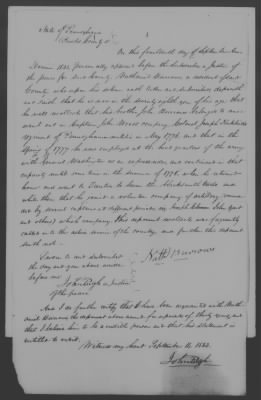 State of Pennsylvania
Bucks County ss
On this fourteenth day of September Anno
Domini 1832, personally appeared before the subscriber a Justice
of the peace for said County, Nathaniel Burrows a resident of said
County who upon his solemn oath doth
and saith that he is now in the seventy eighth year of his age that
he well recollects that his brother John Burrows belonged to and
went out in Captain John Moore company Colonel Joseph
regiment of Pennsylvania militia in May 1776, and that in the
Spring of 1777 he was employed at the head quarters of the army
with General Washington as an express rider and continued in that
capacity until some time in the summer of 1778, when he returned
home and went to Trenton to learn the Blacksmith trade and
while there that he joined a volunteer company of
by several captains at different periods
and others) which company this deponent recollects was frequently
called into the active service of the country and further this deponent
saith not
Sworn to and subscribed
the day and year above written
before me
John Pugh a Justice
of the peace
Nathl Burrows
And I do further certify that I have been acquainted with Nath
aniel Burrows the deponent above named for upwards of thirty years, and
that I believe him to be a credible person and that his statement is
entitled to credit.
Witness my hand September 14 1832.
John Pugh